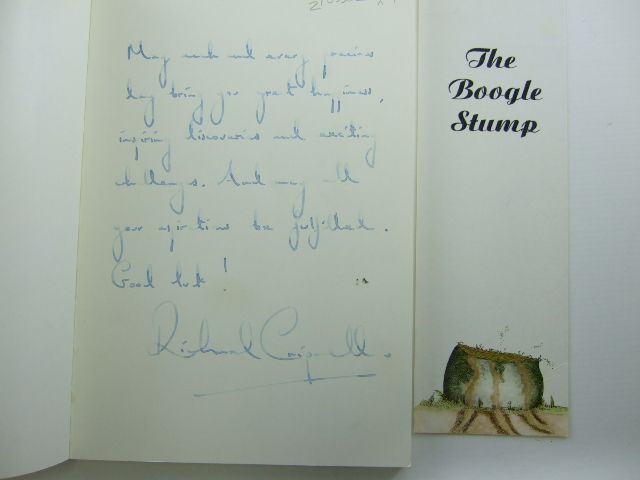 May each and every precious
day bring you great happiness,
inspiring discoveries and exciting
challenges. And may all
your aspirations be fulfilled.
Good luck!
Richard
The
Boogle
Stump